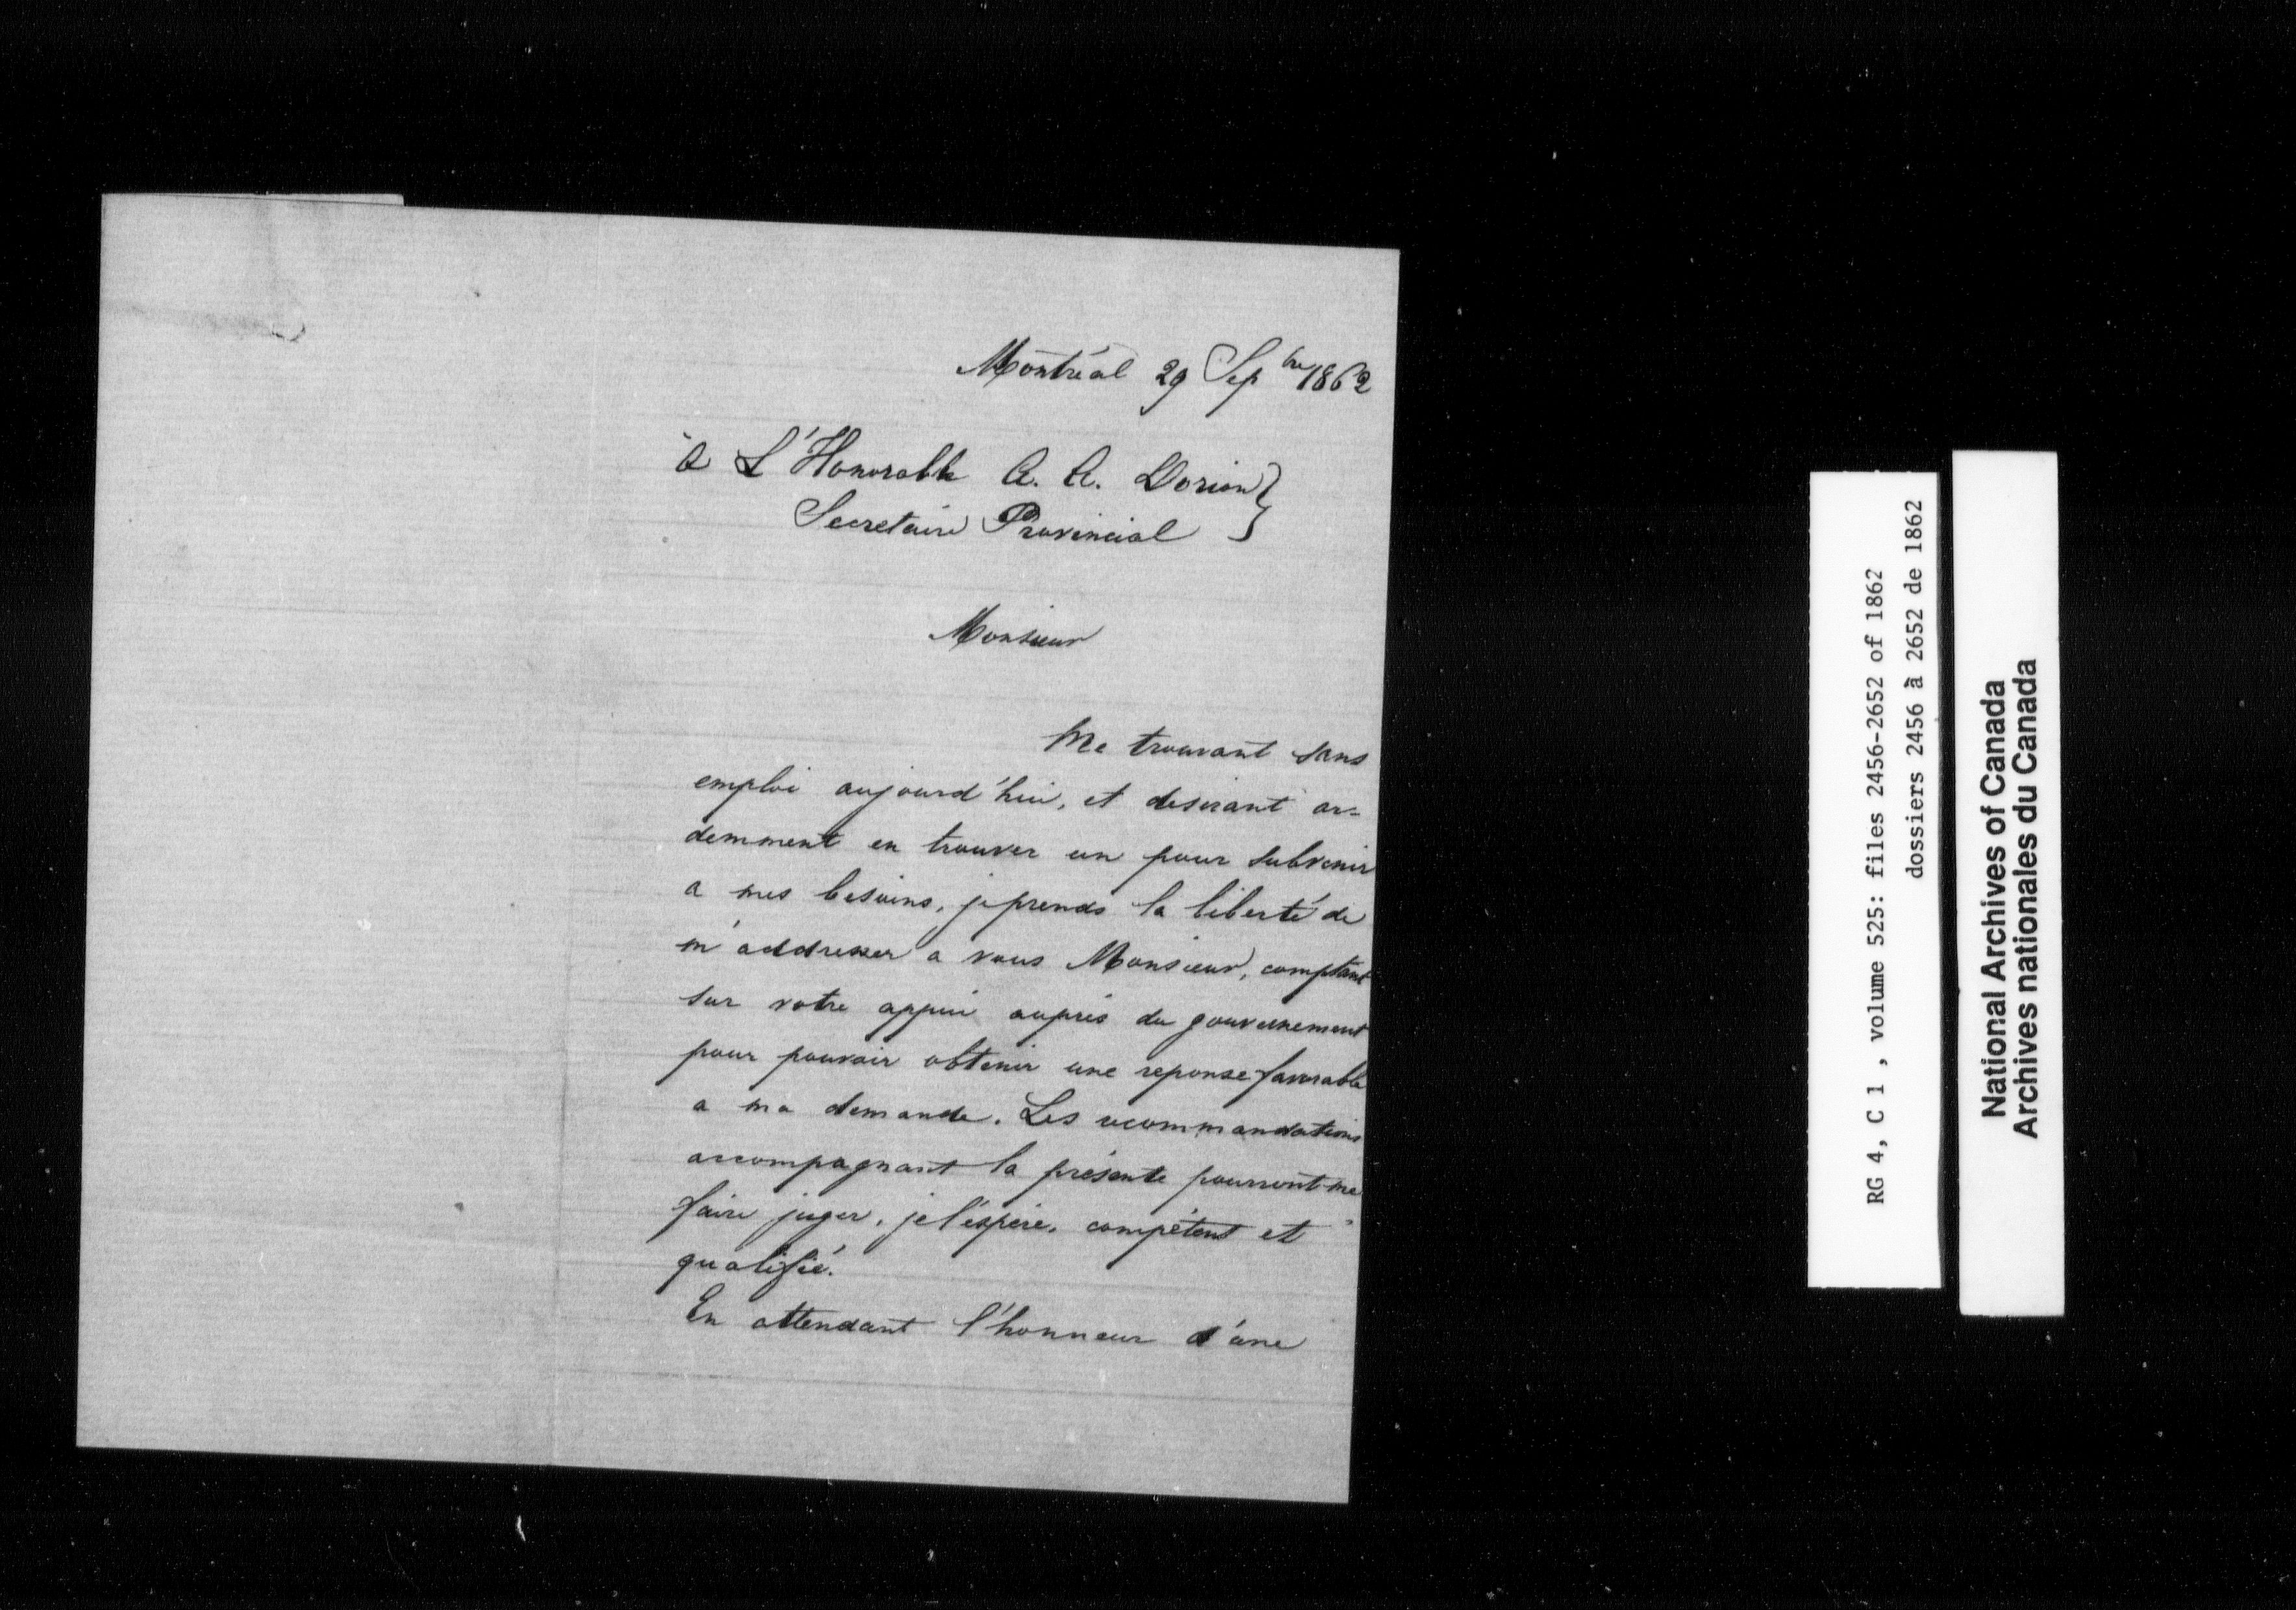 Montréal 29 Sep bre 1862
à L'Honorable A. A. Dorion }
Secretaire Provincial }
Monsieur
Me trouvant sans
emploi aujourd'hui, et desirant ar=
demment en trouver un pour subvenir
a mes besoins, je prends la liberté de
m'addresser a vous Monsieur, comptant
sur votre appui auprès du gouvernement
pour pouvoir obtenir une reponse favorable
a ma demande. Les recommandations
accompagnant la présente pourront me
faire juger, je l'éspère, compétent et
qualifié.
En attendant l'honneur d'une
RG 4, C 1 , volume 525: files 2456-2652 of 1862
dossiers 2456 à 2652 de 1862
National Archives of Canada
Archives nationales du Canada